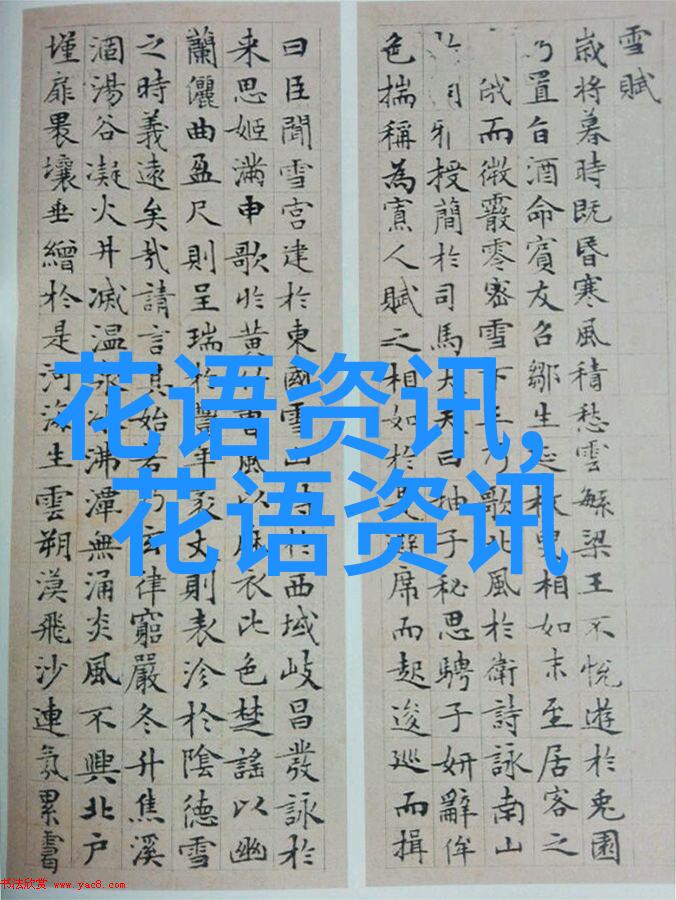 雪賦
歲将暮時既昏寒風積愁雲繁梁王不悅遊於兎園
乃置旨酒命賓友召鄒生延枚叟相如末至居客之
俄而微霰零密雪下王乃歌北風於衛詩詠南山
雅授簡於司馬大夫曰抽子秘思騁子妍辭侔
色揣稱為寡人賦之相如於是避席而起逡巡而揖
曰臣聞雪宫建於東國雪山峙於西域岐昌發詠於
来思姬滿申歌於黄竹曹風以麻衣比色楚謠以幽
蘭儷曲盈尺則呈瑞於豐年袤丈則表沴於陰德雪
之時義遠矣哉請言其始若乃玄律窮嚴冬升焦溪
涸湯谷凝火井滅温泉冰沸潭無涌炎風不興北户
墐扉壤垂繒於是河海生雲朔漠飛沙連氛累靄
花语资讯,
花语资讯
书法欣赏 www.yac8.com